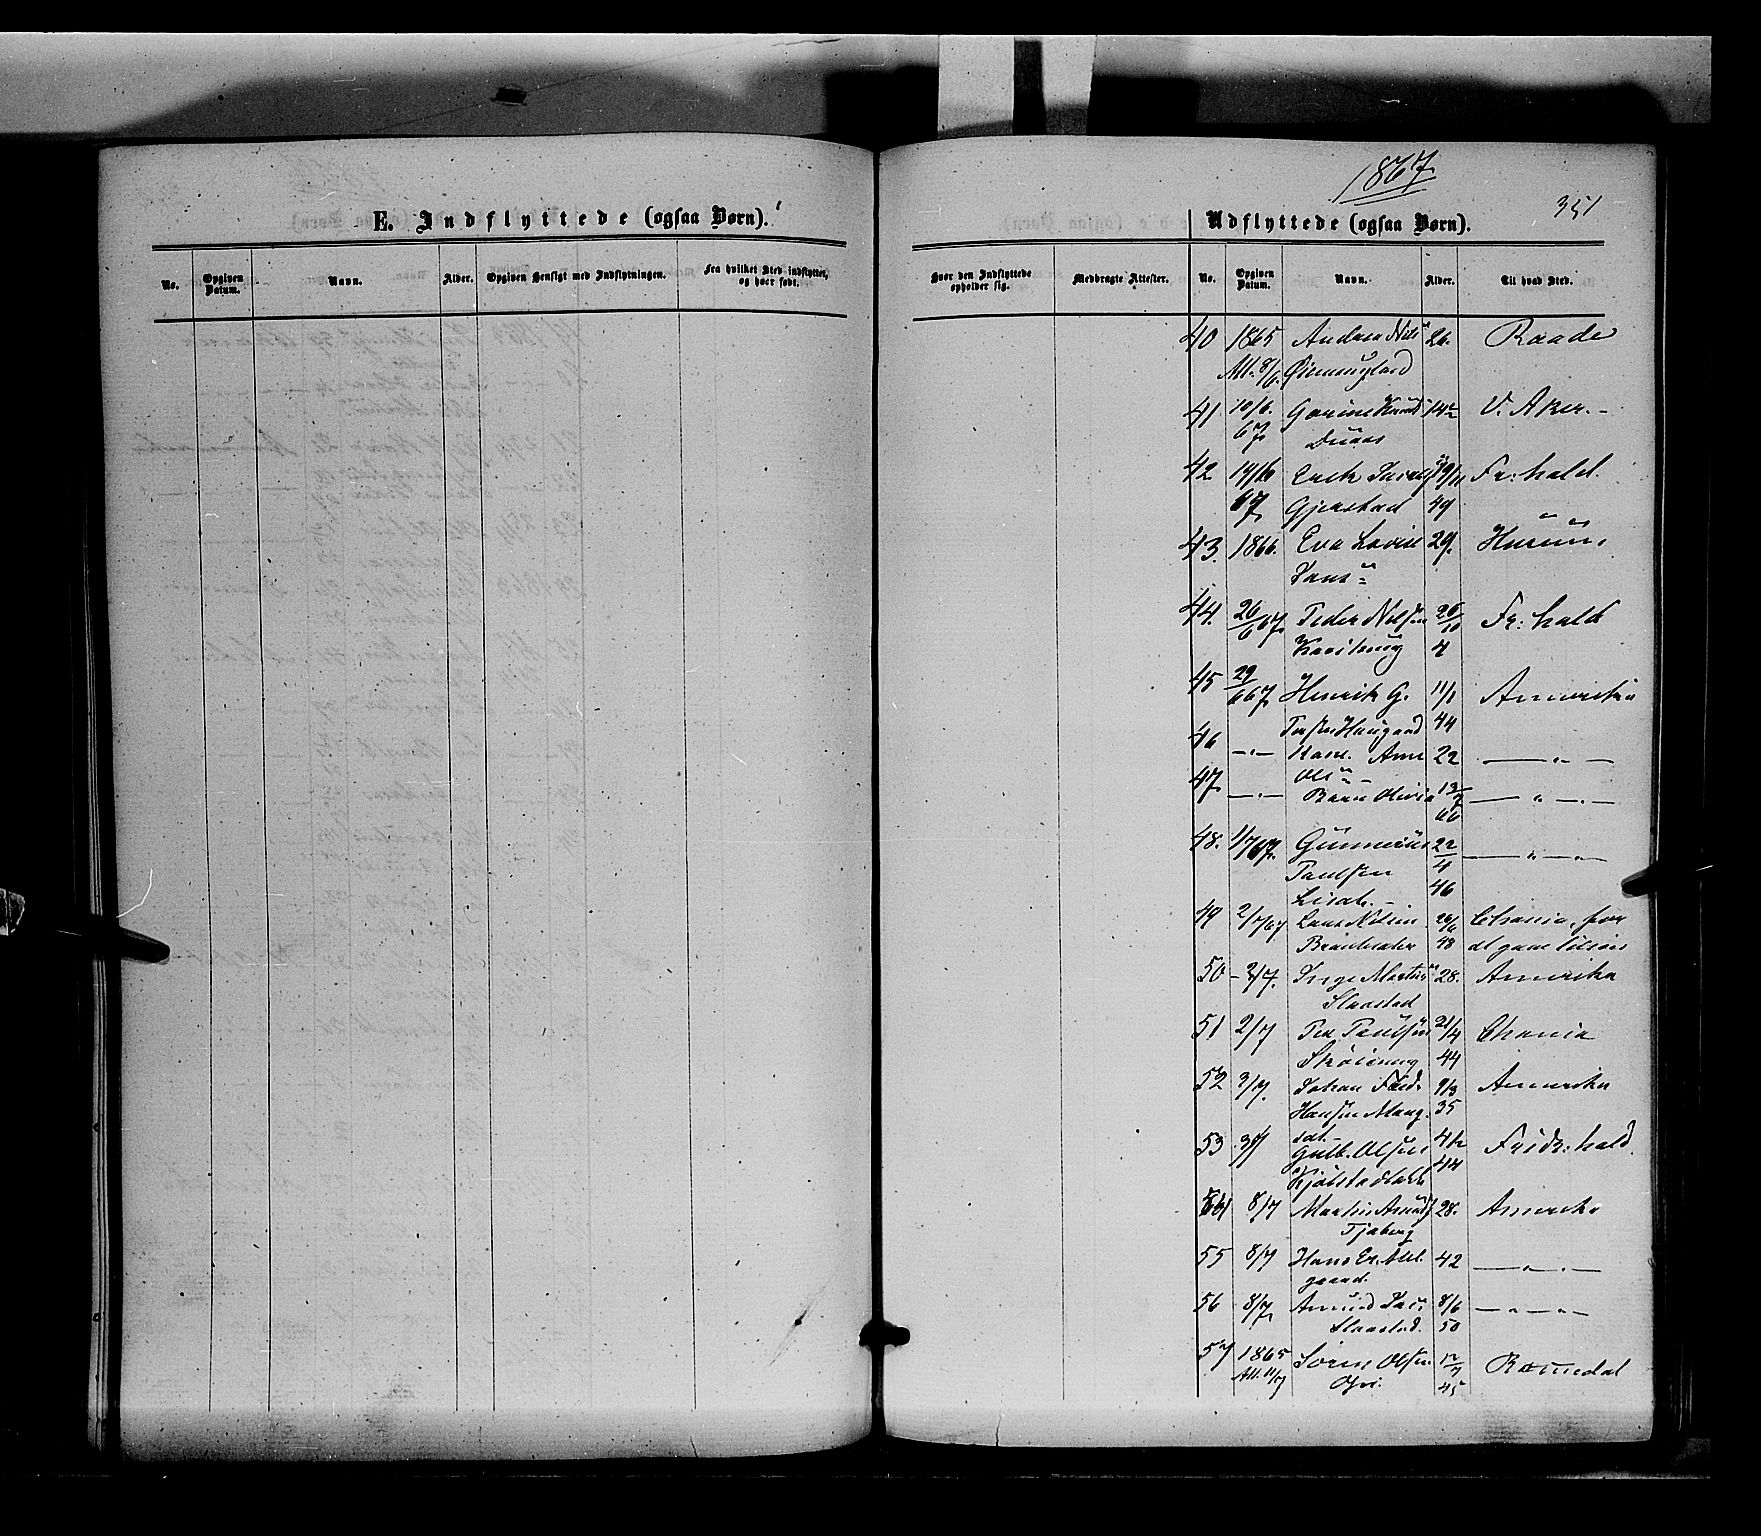 E. Indflyttede (ogsaa Børn).
No.
Opgiven Datum.
Navn.
Alder.
Opgiven Hensigt med Indflytningen.
Fra hvilket Sted indflyttet, og hvor født.
1867
351
Udflyttede (ogsaa Børn).
Hvor den Indflyttede opholder sig.
Medbragte Attester.
No.
Opgiven Datum.
Navn.
Alder.
Til hvad Sted.
40 1865 Andrea Nils 26. Raade
Att. 8/6.
41 10/6. Gorine Knud 14 V. Aker.
67
42 14/6 19/11 Fr: hald.
67 Gjerstad 49
43. 1866. Eva Lovise 29.
44. 26/6 67. Peder Nilsen 26/10 Fr: hald
4
45 29/6 67 Henrik G. 11/1 Amerika
44
46 —"— Kone. Anne 22 —"—
Ols
47 —"— Barn Olivia 13/7 —"—
66
48. 1/7 67. Gunnerius 22/4 —"—
Paulsen 46
49 2/7/67 Lars Nilsen 26/6 Chania, for
48 at gaae tilsøes
50 - 2/7. Inge Martin 28. Amerika
Slaastad
51 2/7 Per Paulsen 21/4 Chania
44
52 3/7. Johan Fredr. 9/3 Amerika
Hansen Mang. 35
53 3/7 Gulb. Olsen Fridr: hald.
44
54 8/7 Martin Amunds 28. Amerika
Tjaberg
55 8/7 Hans Er. 42 —"—
gaard.
56 8/7. Amund 8/6 —"—
Slaastad. 50
57 1865 Søren Olsen 17/7 Romedal
Att. 11/7 45